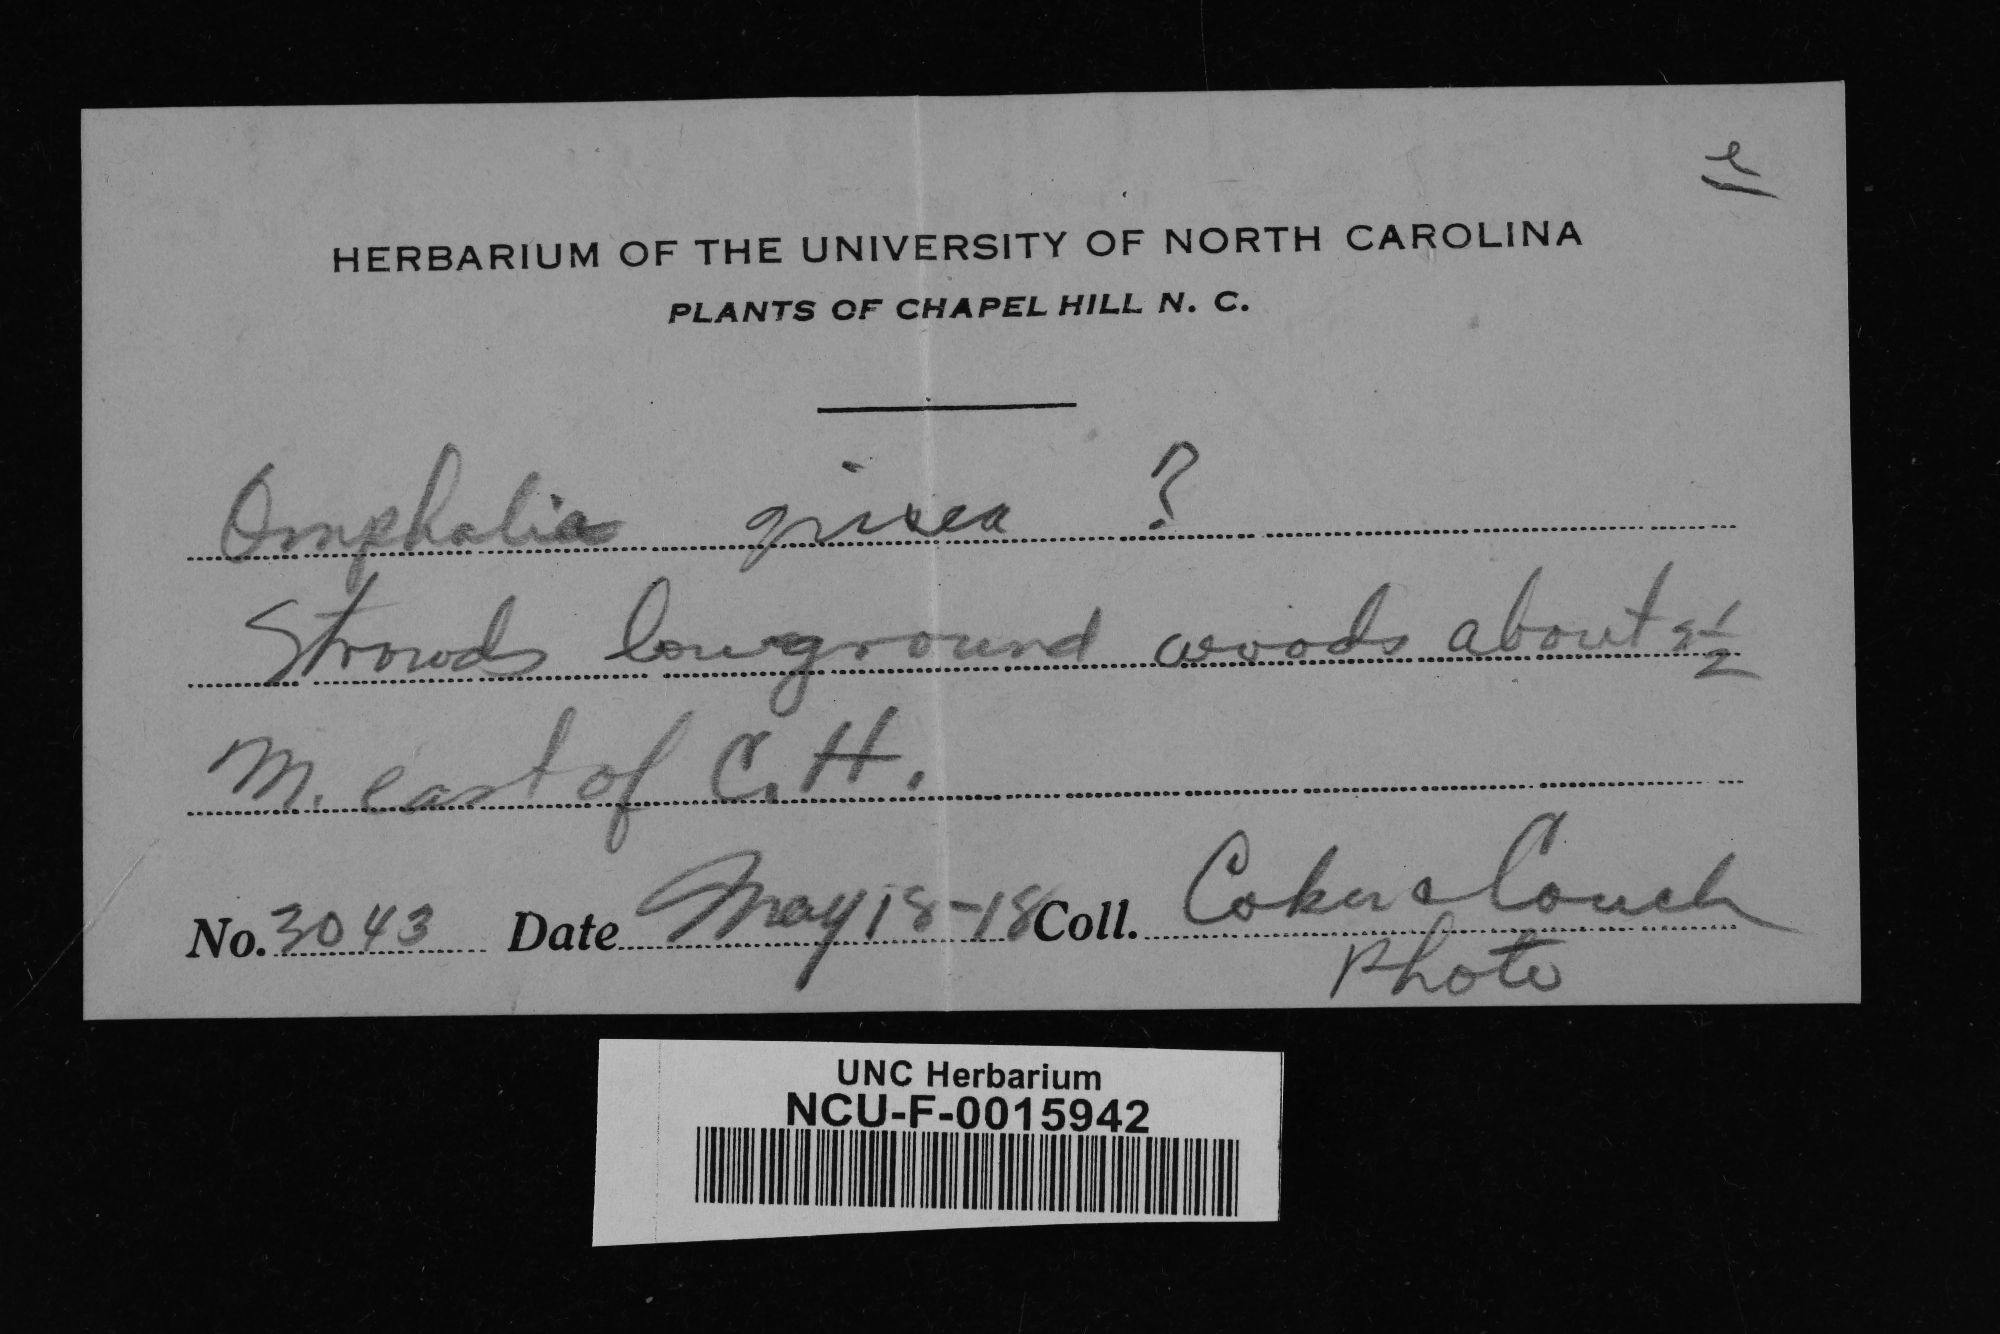 e
HERBARIUM OF THE UNIVERSITY OF NORTH CAROLINA
PLANTS OF CHAPEL HILL N. C.
Omphalia grisea ?
Strowds lowground woods about
M. east of C. H.
No. 3043 Date May 18-18 Coll. Coker & Couch
Photo
UNC Herbarium
NCU-F-0015942